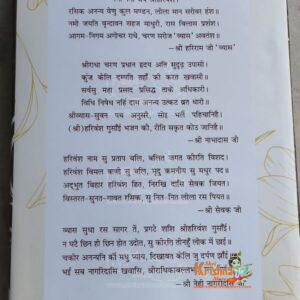 रसिक अनन्य वेणु कुल मण्डन, लीला मान सरोवर हंश॥
नमों जयति वृन्दावन सहज माधुरी, रास विलास प्रशंश।
आगम-निगम अगोचर राधे, चरण सरोज 'व्यास' अवतंश॥
–श्री हरिराम जी 'व्यास'
श्रीराधा चरण प्रधान हृदय अति सुदृढ़ उपासी।
कुंज केलि दम्पति तहाँ की करत खवासी॥
सर्वसु महा प्रसाद प्रसिद्ध ताके अधिकारी।
विधि निषेध नहिं दास अनन्य उत्कट व्रत धारी॥
श्रीव्यास-सुवन पथ अनुसरै, सोइ भलैं पहिचानिहै।
(श्री)हरिवंश गुसाँई भजन की, रीति सकृत कोउ जानिहै॥
–श्री नाभादास जी
हरिवंश नाम सु प्रताप बलि, बलित जगत कीरति विशद।
हरिवंश विमल वाणी सु बलि, मृदु कमनीय सु मधुर पद॥
अद्भुत बिहार हरिवंश हित, निरखि दासि सेवक जियत।
विस्तरत-सुनत-गावत रसिक, सु नित-नित लीला रस पियत॥
–श्री सेवक जी
व्यास सुधा रस सागर तें, प्रगटे शशि श्रीहरिवंश गुसाँई।
न घटै छिन ही छिन होत उदोत, सु कीरति तीनहुँ लोक में छाई॥
चकोर अनन्यनि कौं मधु प्याय, दिखायब केलि जु दर्पण झाँई।
भई सब नागरिदासि खवासि, श्रीराधिकावल्लभ
–श्री नेही नागरीदास
Shri
Krishna